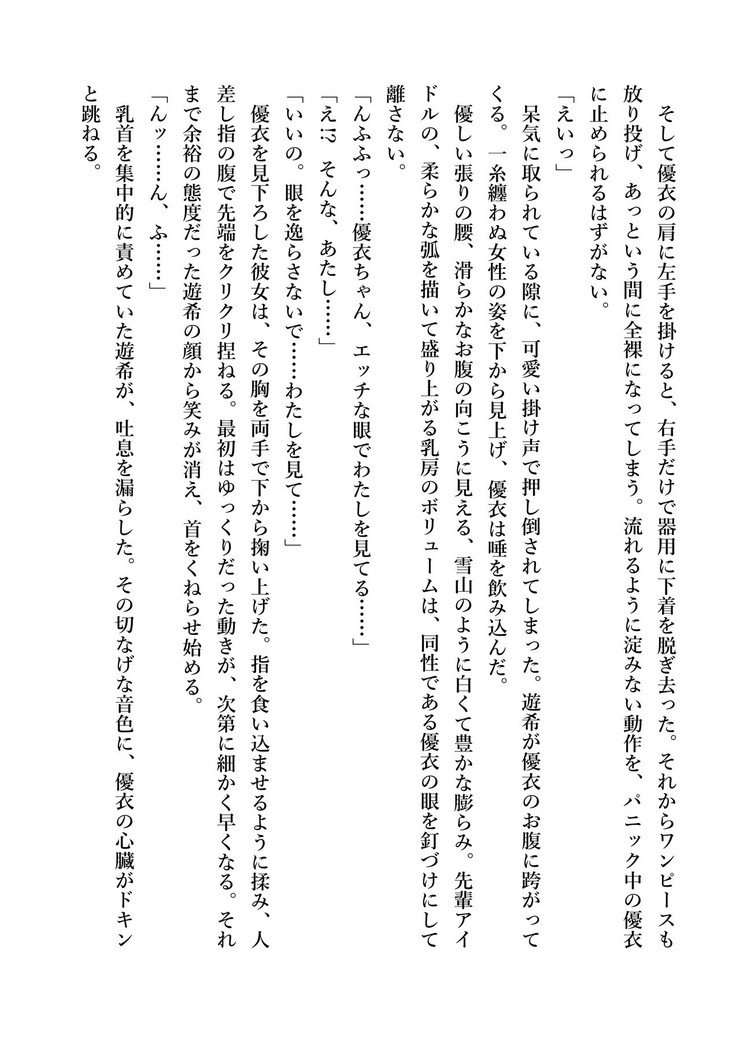 そして優衣の肩に左手を掛けると、右手だけで器用に下着を脱ぎ去った。それからワンピースも
放り投げ、あっという間に全裸になってしまう。流れるように淀みない動作を、パニック中の優衣
に止められるはずがない。
「えいっ」
　呆気に取られている隙に、可愛い掛け声で押し倒されてしまった。遊希が優衣のお腹に跨がって
くる。一糸纏わぬ女性の姿を下から見上げ、優衣は唾を飲み込んだ。
　優しい張りの腰、滑らかなお腹の向こうに見える、雪山のように白くて豊かな膨らみ。先輩アイ
ドルの、柔らかな弧を描いて盛り上がる乳房のボリュームは、同性である優衣の眼を釘づけにして
離さない。
「んふふっ……優衣ちゃん、エッチな眼でわたしを見てる……」
「え!?　そんな、あたし……」
「いいの。眼を逸らさないで……わたしを見て……」
　優衣を見下ろした彼女は、その胸を両手で下から掬い上げた。指を食い込ませるように揉み、人
差し指の腹で先端をクリクリ捏ねる。最初はゆっくりだった動きが、次第に細かく早くなる。それ
まで余裕の態度だった遊希の顔から笑みが消え、首をくねらせ始める。
「んッ……ん、ふ……」
　乳首を集中的に責めていた遊希が、吐息を漏らした。その切なげな音色に、優衣の心臓がドキン
と跳ねる。